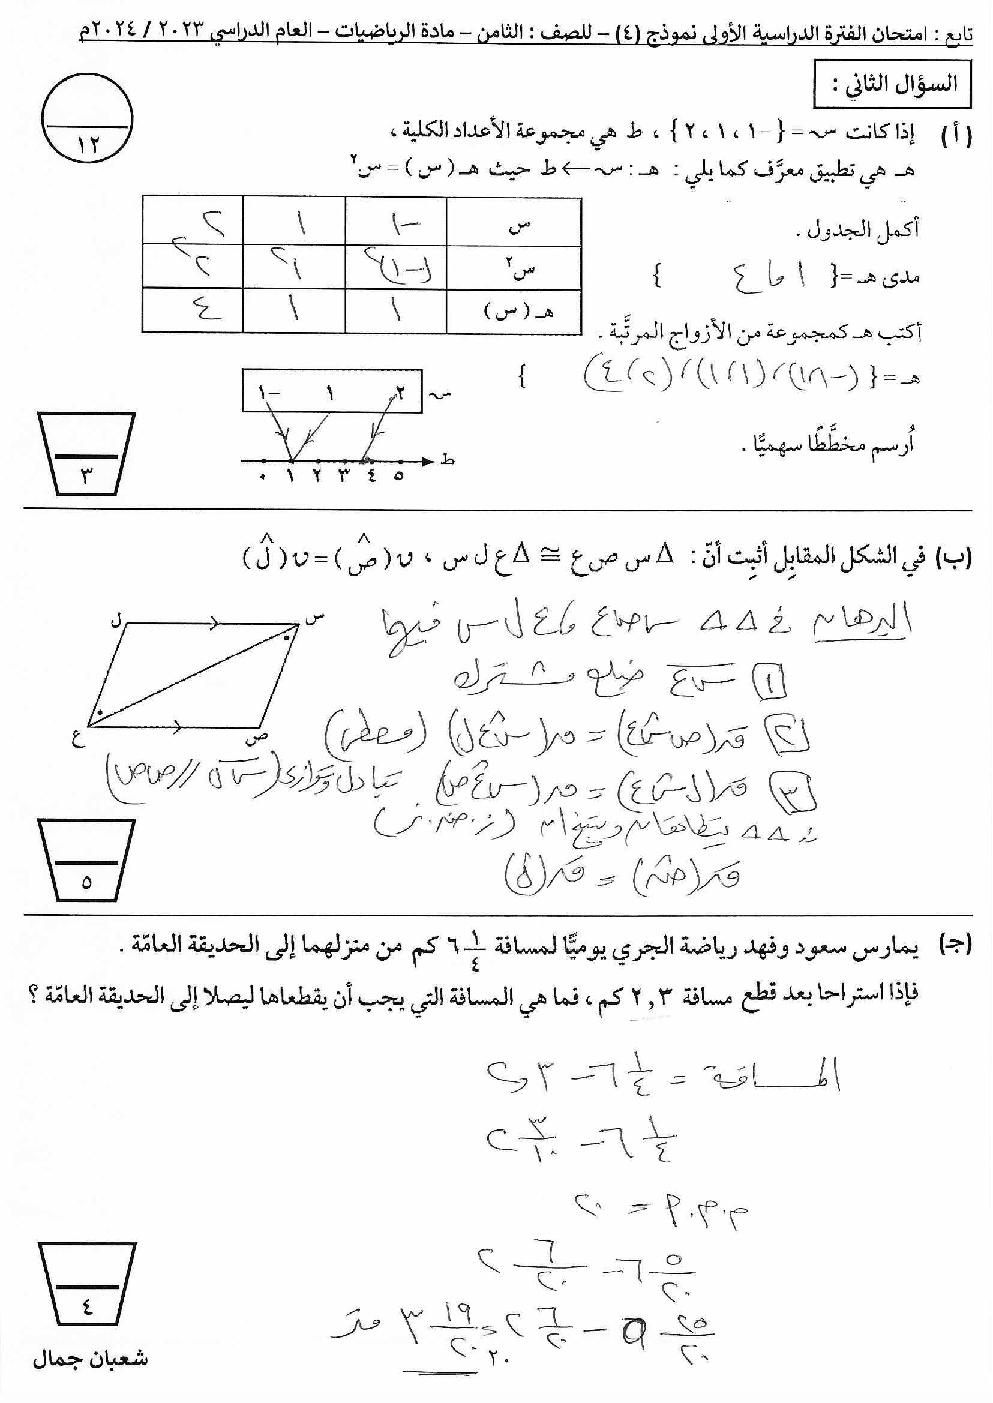 تابع : امتحان الفترة الدراسية الأولى نموذج (٤) – للصف : الثامن – مادة الرياضيات – العام الدراسي ٢٠٢٣ / ٢٠٢٤م
السؤال الثاني :
١٢
(أ) إذا كانت س = {-١ ، ١ ، ٢} ، ط هي مجموعة الأعداد الكلية ،
هـ هي تطبيق معرَّف كما يلي : هـ : س ← ط حيث هـ (س) = س٢
أكمل الجدول .
س -١ ١ ٢
س٢ (-١)٢ ١٢ ٢٢
هـ (س) ١ ١ ٤
مدى هـ = { ١ ، ٤ }
أكتب هـ كمجموعة من الأزواج المرتَّبة .
هـ = { (-١،١) ، (١،١) ، (٢،٤) }
أُرسم مخطَّطًا سهميًّا .
س -١ ١ ٢
ط ٠ ١ ٢ ٣ ٤ ٥
٣
(ب) في الشكل المقابِل أثبِت أنّ : Δ س ص ع ≅ Δ ع ل س ، ن(ص̂) = ن(ل̂)
س ل ع ص
البرهان في Δ Δ س ص ع ، ع ل س فيها
١ س ع ضلع مشترك
٢ ق(ص س ع) = ق(س ع ل) (معطى)
٣ ق(ل س ع) = ق(س ع ص) تبادل وتوازى (س ل // ص ع)
∴ Δ Δ يتطابقان وينتج ان (ز.ض.ز)
ق(ص̂) = ق(ل̂)
٥
(جـ) يمارس سعود وفهد رياضة الجري يوميًّا لمسافة ٦ ١/٤ كم من منزلهما إلى الحديقة العامّة .
فإذا استراحا بعد قطع مسافة ٢,٣ كم ، فما هي المسافة التي يجب أن يقطعاها ليصلا إلى الحديقة العامّة ؟
المسافة = ٦ ١/٤ – ٢,٣
٦ ١/٤ – ٢ ٣/١٠
م.م.أ = ٢٠
٦ ٥/٢٠ – ٢ ٦/٢٠
٥ ٢٥/٢٠ – ٢ ٦/٢٠ = ٣ ١٩/٢٠ متر
٢٠
٤
شعبان جمال